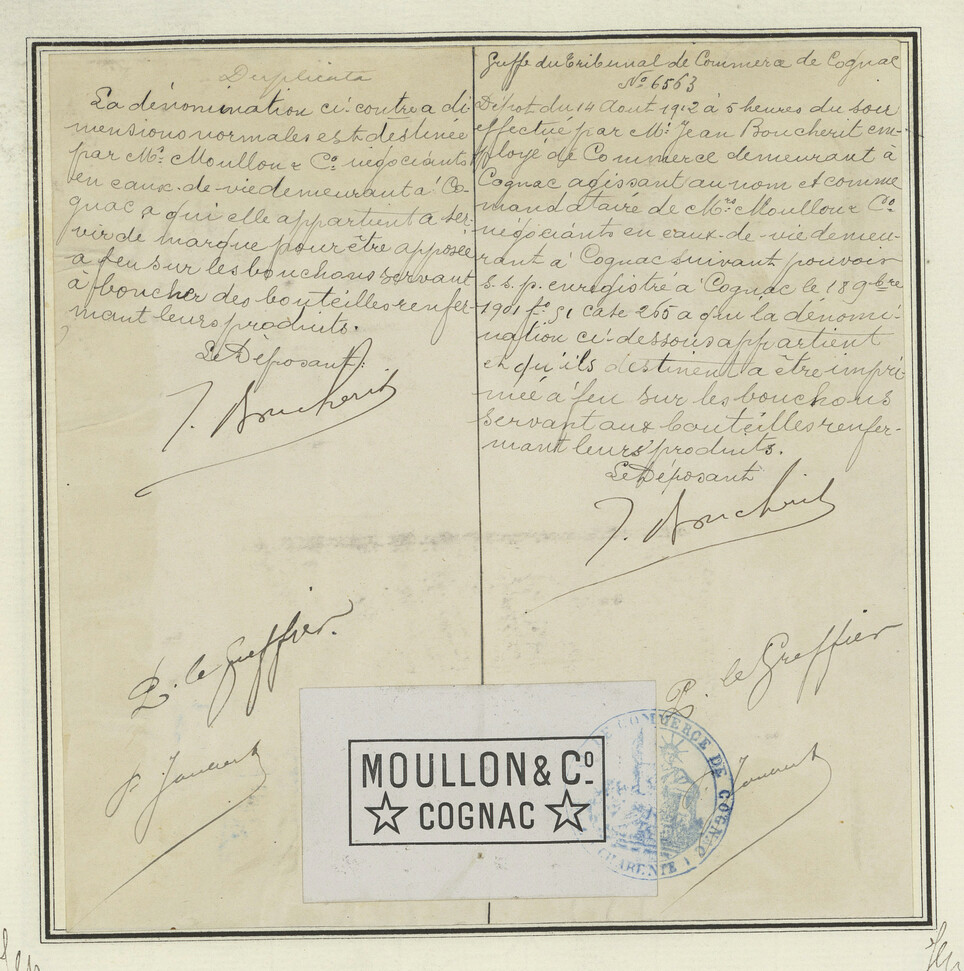 Duplicata
La dénomination ci-contre a di-
mensions normales est destinée
par Mrs Moullon & Co négociants
en eaux-de-vie demeurant à Co-
gnac a qui elle appartient a ser-
vir de marque pour être apposée
a feu sur les bouchons servant
à boucher des bouteilles renfer-
mant leurs produits.
Le Déposant:
J. Boucherit
P. le Greffier.
Greffe du Tribunal de Commerce de Cognac
No 6563
Dépot du 14 Aout 1912 à 5 heures du soir
effectué par Mr Jean Boucherit em-
ployé de Commerce demeurant à
Cognac agissant au nom et comme
mandataire de Mrs Moullon & Co
négociants en eaux-de-vie demeu-
rant à Cognac suivant pouvoir
s.s.p. enregistré à Cognac le 18 9bre
1901 fo 51 case 265 a qui la dénomi-
nation ci-dessous appartient
et qu'ils destinent a être impri-
mée à feu sur les bouchons
servant aux bouteilles renfer-
mant leurs produits.
Le Déposant
J. Boucherit
P. le Greffier
MOULLON & Co
COGNAC
DE COMMERCE DE COGNAC
CHARENTE